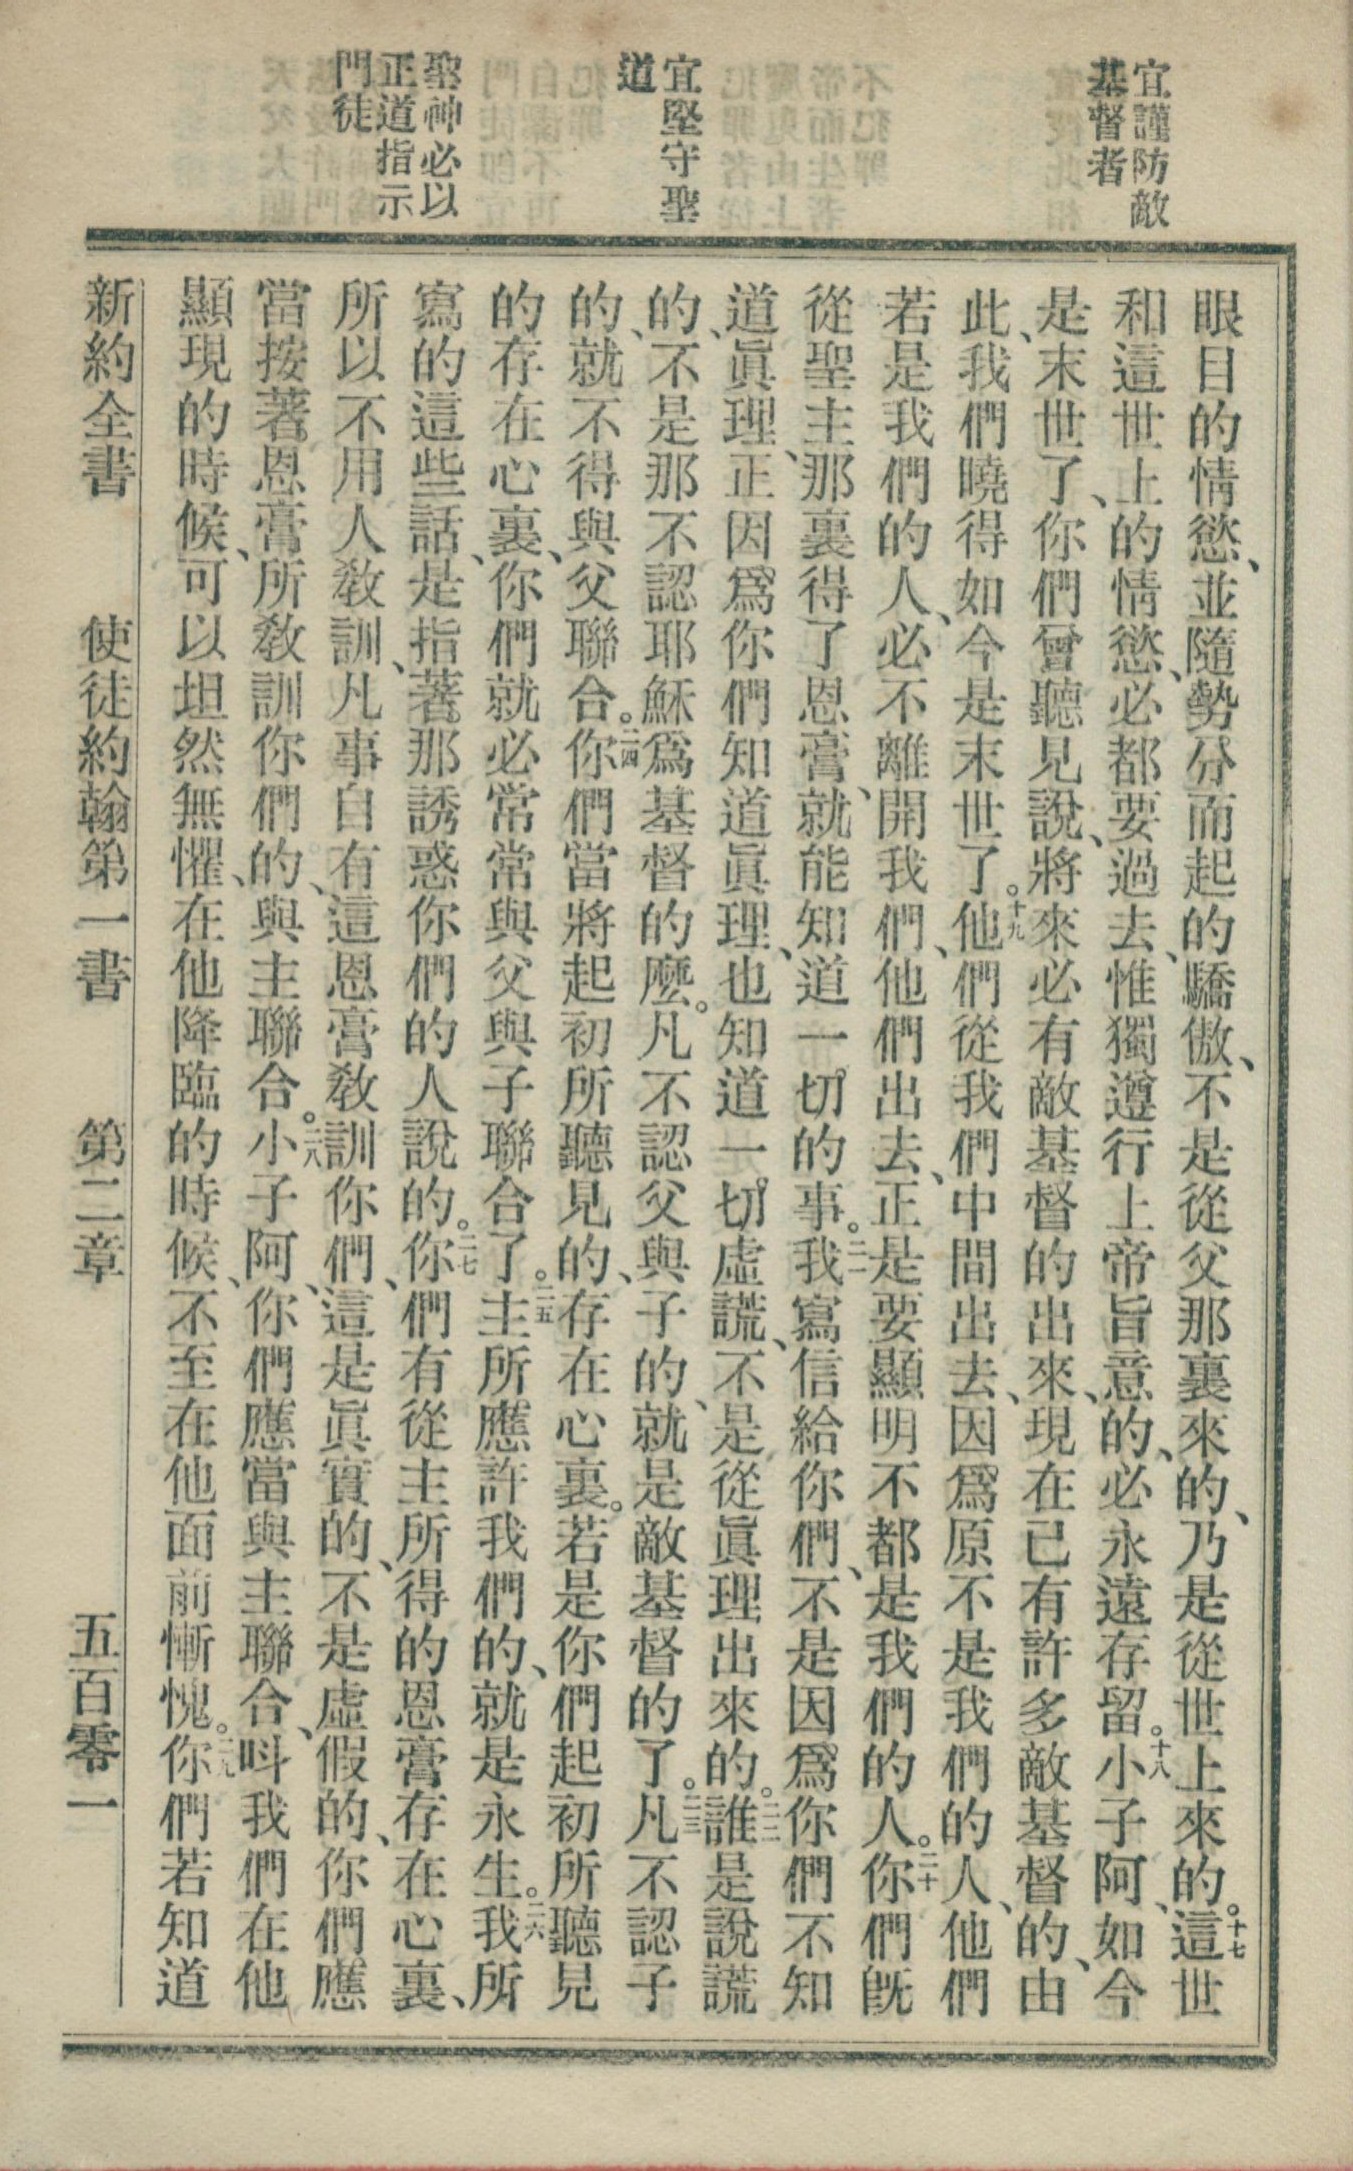 宜謹防敵
基督者
宜堅守聖
道
聖神必以
正道指示
門徒
眼目的情慾、並隨勢分而起的驕傲、不是從父那裏來的、乃是從世上來的。十七這世
和這世上的情慾、必都要過去、惟獨遵行上帝旨意的、必永遠存留。十八小子阿、如今
是末世了、你們曾聽見說、將來必有敵基督的出來、現在已有許多敵基督的、由
此、我們曉得如今是末世了。十九他們從我們中間出去、因爲原不是我們的人、他們
若是我們的人、必不離開我們、他們出去、正是要顯明不都是我們的人。二十你們既
從聖主那裏得了恩膏、就能知道一切的事。二一我寫信給你們、不是因爲你們不知
道眞理、正因爲你們知道眞理、也知道一切虛謊、不是從眞理出來的。二二誰是說謊
的、不是那不認耶穌爲基督的麼。凡不認父與子的、就是敵基督的了。二三凡不認子
的、就不得與父聯合。二四你們當將起初所聽見的、存在心裏。若是你們起初所聽見
的存在心裏、你們就必常常與父與子聯合了。二五主所應許我們的、就是永生。二六我所
寫的這些話、是指著那誘惑你們的人說的。二七你們有從主所得的恩膏存在心裏、
所以不用人敎訓、凡事自有這恩膏敎訓你們、這是眞實的、不是虛假的、你們應
當按著恩膏所敎訓你們的、與主聯合。二八小子阿、你們應當與主聯合、呌我們在他
顯現的時候、可以坦然無懼、在他降臨的時候、不至在他面前慚愧。二九你們若知道
新約全書 使徒約翰第一書 第二章 五百零一